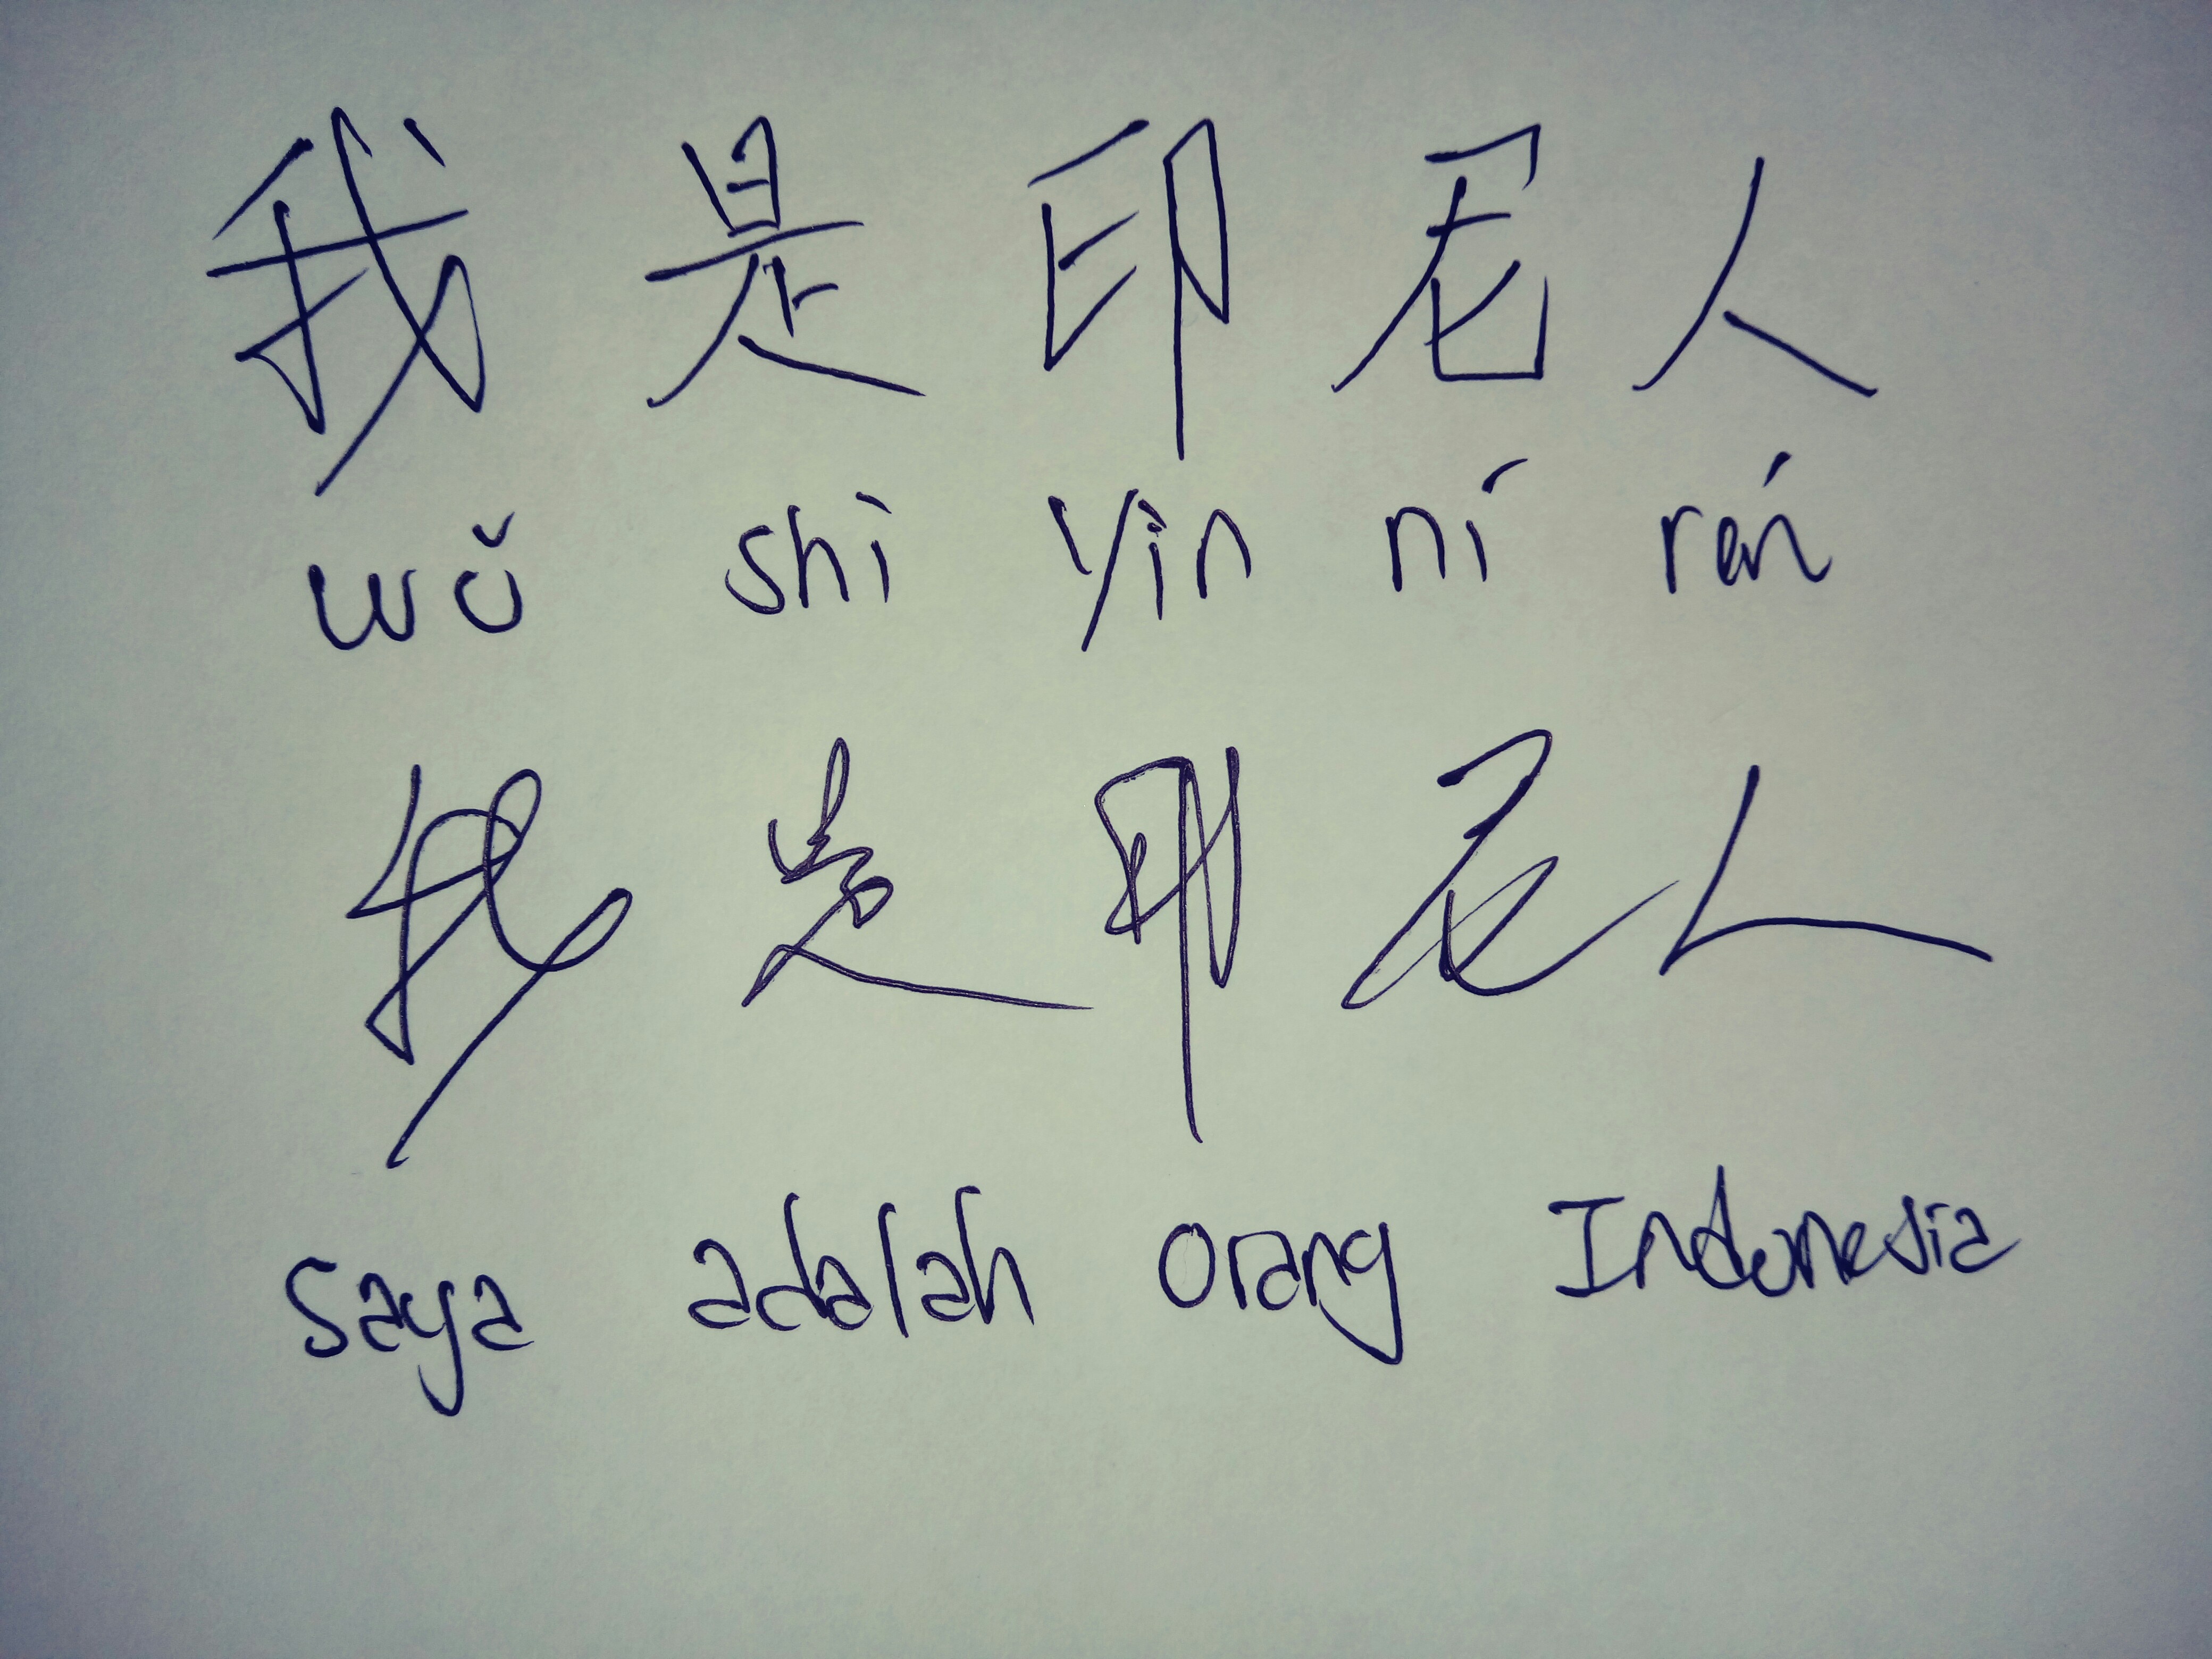 我是印尼人
wǒ shì yìn ní rén
我是印尼人
saya adalah orang Indonesia